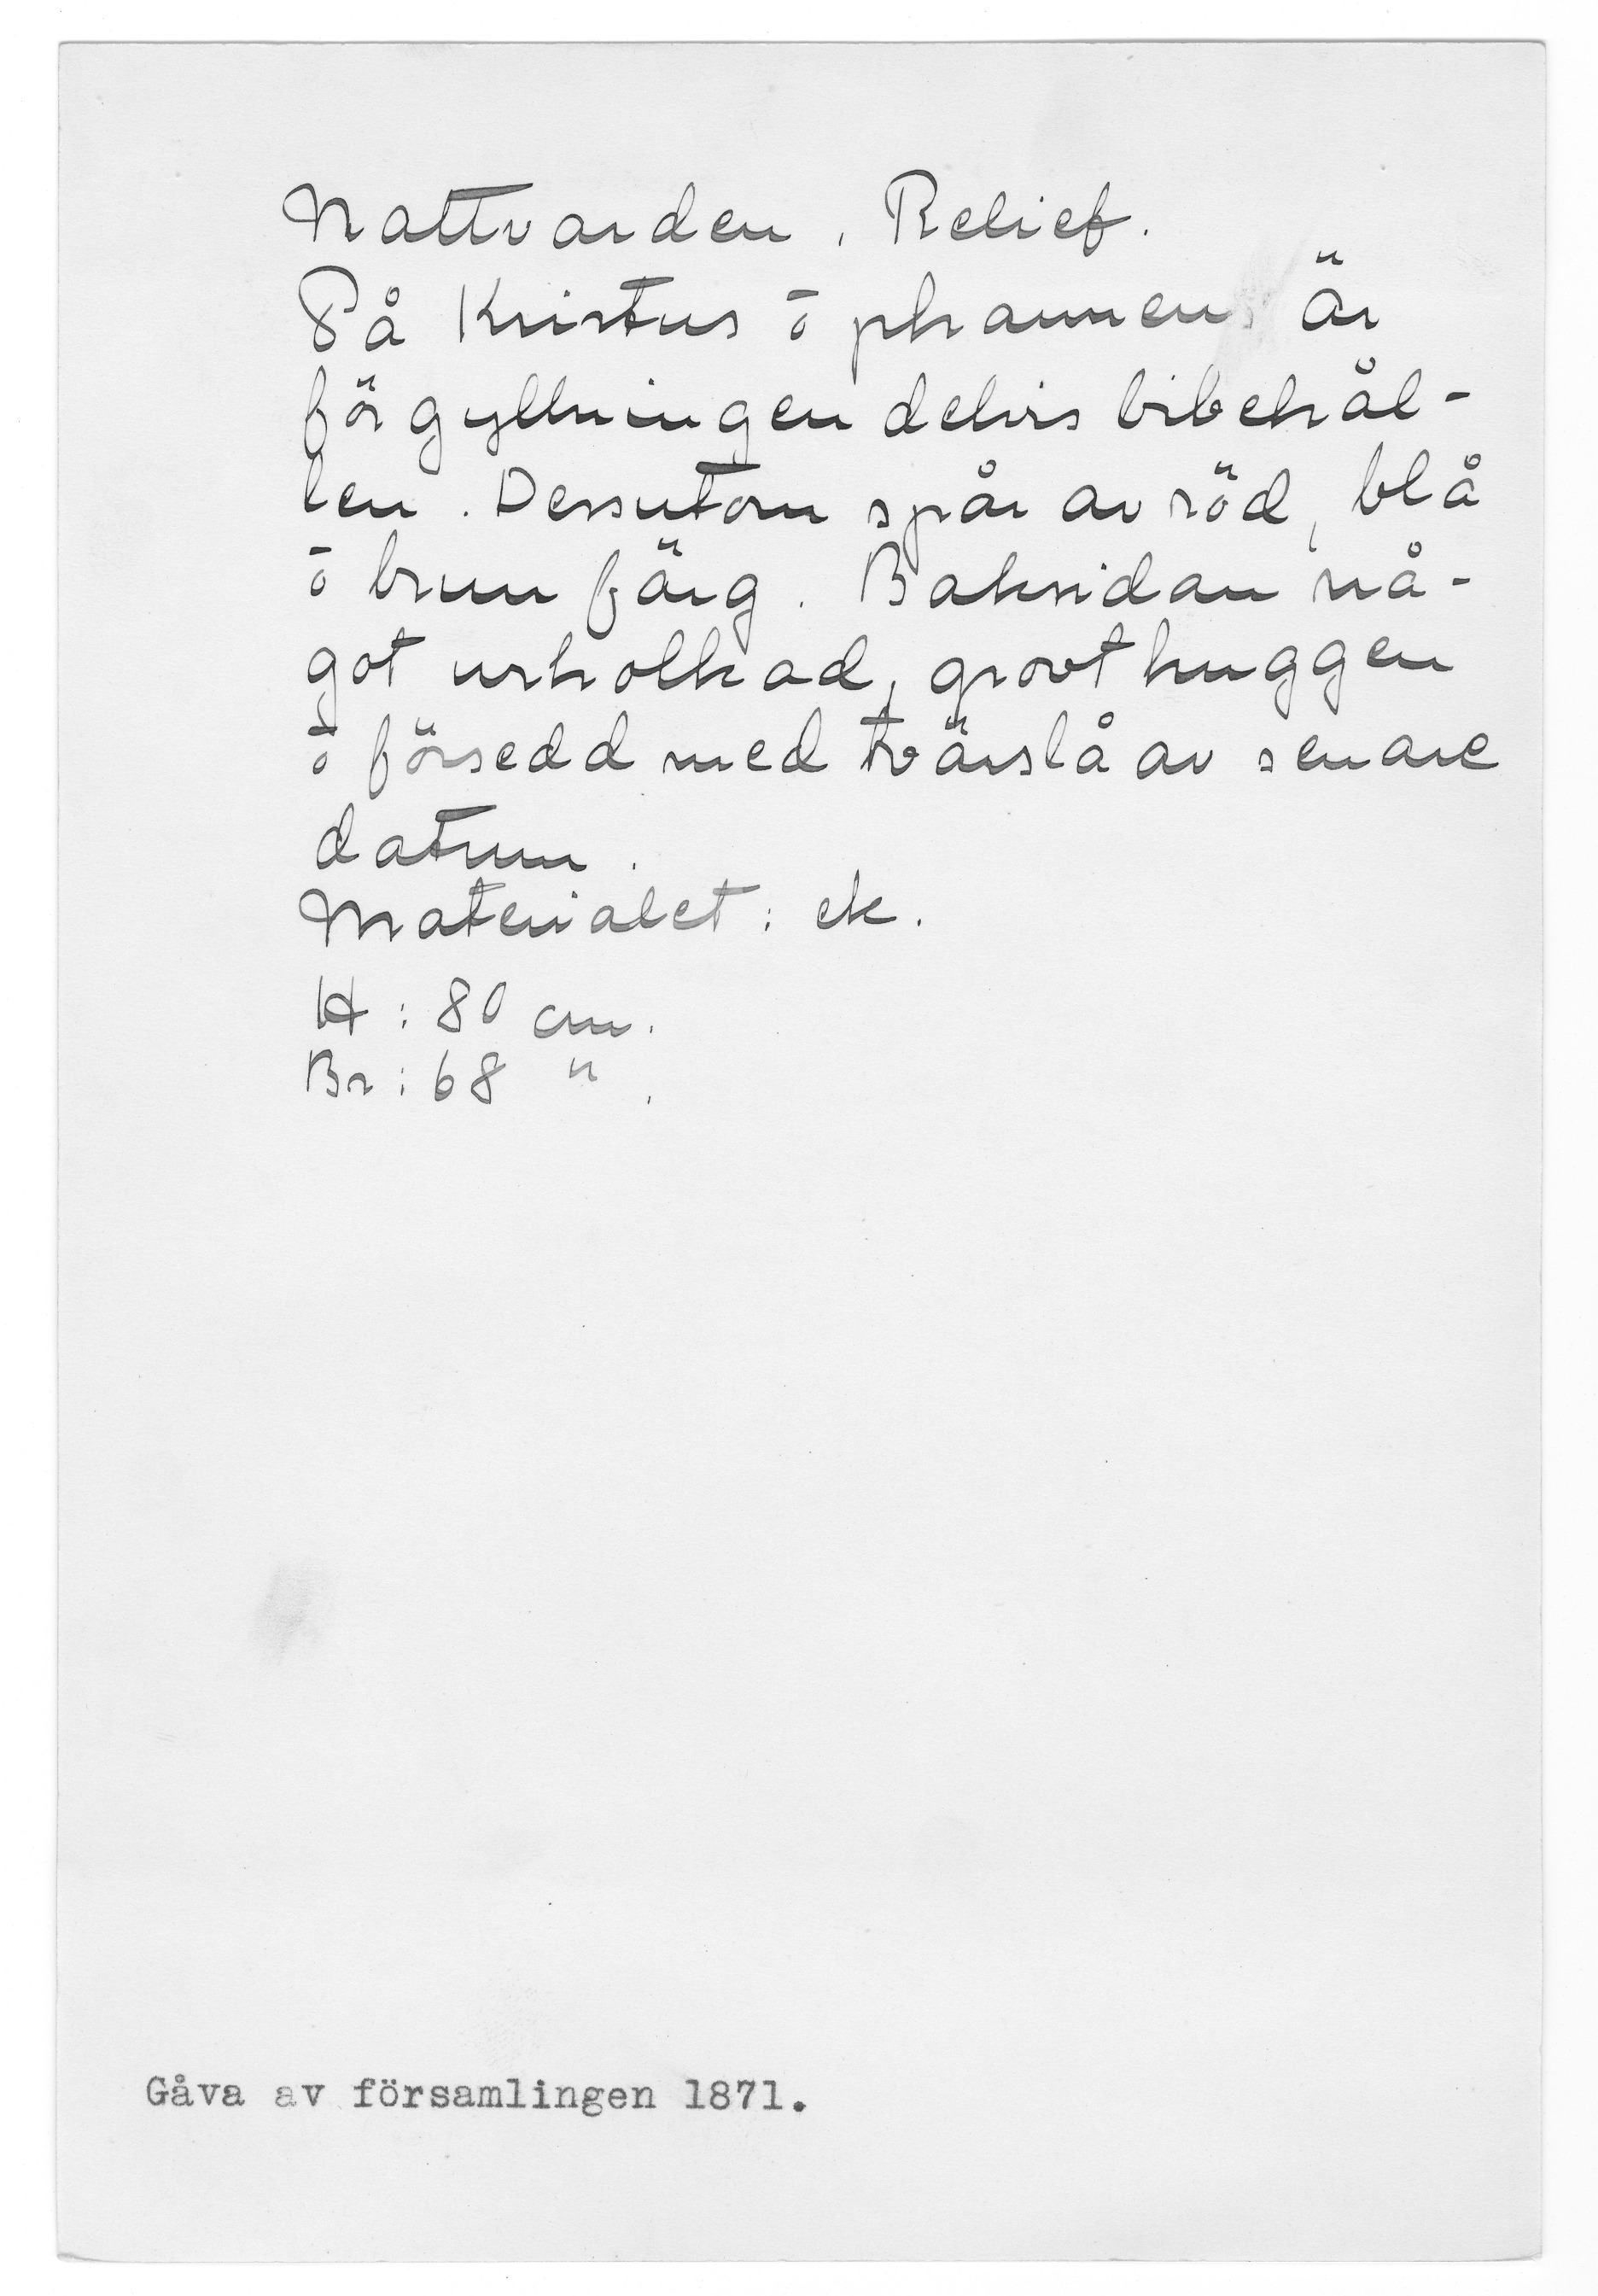 Nattvarden. Relief.
På Kristus ō phannen är
förgyllningen delvis bibehål-
len. Dessutom spår av röd, blå
ō brun färg. Baksidan nå-
got urholkad, grovt huggen
ō försedd med tvärslå av senare
datum.
Materialet: ek.
H: 80 cm.
Br: 68 ".
Gåva av församlingen 1871.